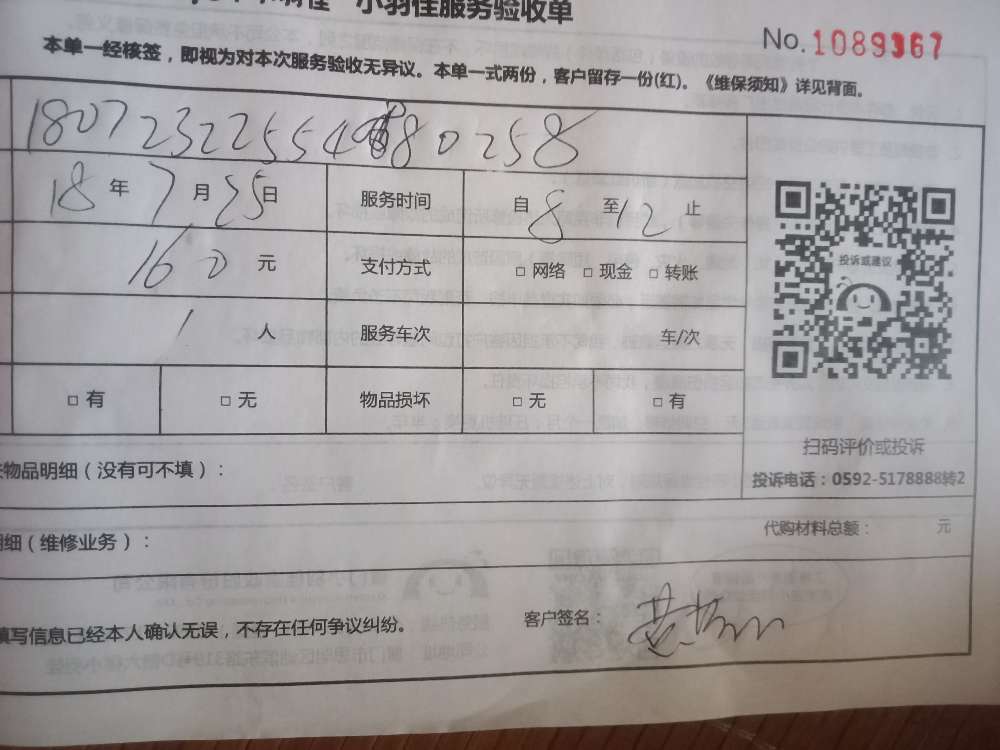 小羽佳服务验收单
No.1089367
本单一经核签，即视为对本次服务验收无异议。本单一式两份，客户留存一份(红)。《维保须知》详见背面。
18年7月25日 服务时间 自8至12止
160元 支付方式 □网络 □现金 □转账
投诉或建议
1人 服务车次 车/次
□有 □无 物品损坏 □无 □有
扫码评价或投诉
物品明细（没有可不填）：
投诉电话：0592-5178888转2
代购材料总额： 元
细（维修业务）：
填写信息已经本人确认无误，不存在任何争议纠纷。
客户签名：